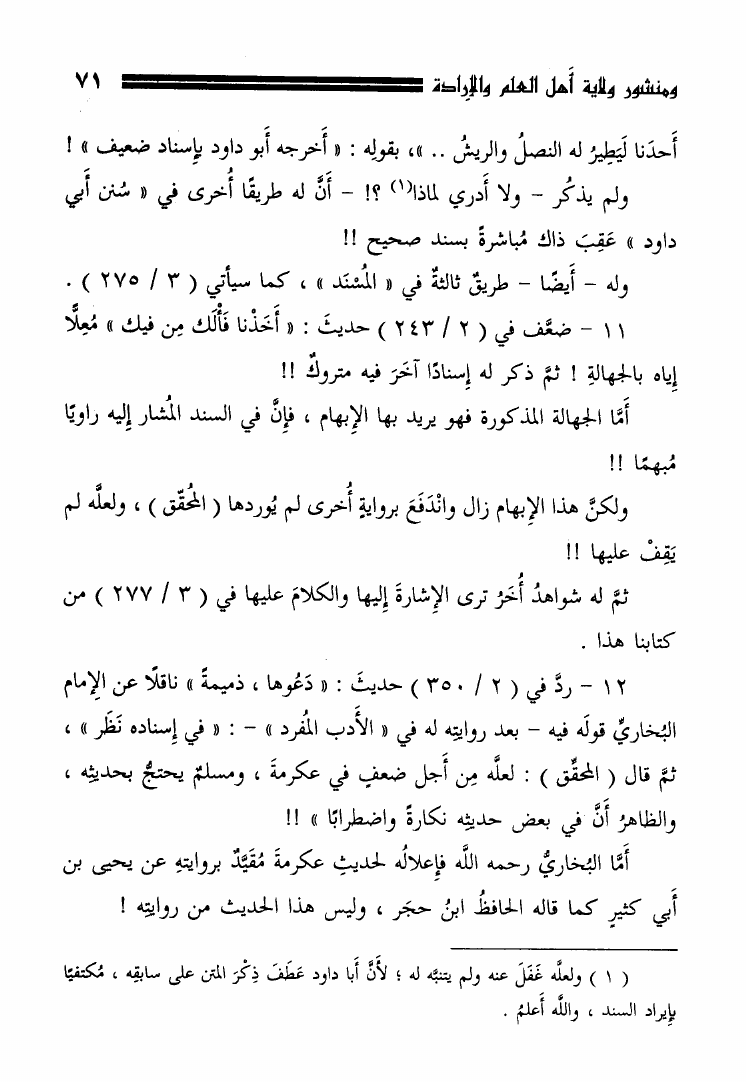 ومنشور ولاية أهل العلم والإرادة ٧١
أَحدَنا لَيَطِيرُ له النصلُ والريشُ .. »، بقولِه : « أخرجه أبو داود بإسناد ضعيف » !
ولم يذكُر – ولا أَدري لماذا(١) ؟! – أَنَّ له طريقًا أُخرى في « سُنن أَبي
داود » عَقِبَ ذاك مُباشرةً بسند صحيح !!
وله – أَيضًا – طريقٌ ثالثةٌ في « المُسْنَد » ، كما سيأتي ( ٣ / ٢٧٥ ) .
١١ – ضعَّف في ( ٢ / ٢٤٣ ) حديثَ : « أَخَذْنا فَأْلَك مِن فيك » مُعِلًّا
إِياه بالجهالةِ ! ثمَّ ذكر له إِسنادًا آخَرَ فيه متروكٌ !!
أَمَّا الجهالة المذكورة فهو يريد بها الإِبهام ، فإِنَّ في السند المُشار إِليه راويًا
مُبهمًا !!
ولكنَّ هذا الإِبهام زال وانْدَفَعَ بروايةٍ أُخرى لم يُوردها ( المُحقّق ) ، ولعلَّه لم
يَقِفْ عليها !!
ثمَّ له شواهدُ أُخَرُ ترى الإِشارةَ إِليها والكلامَ عليها في ( ٣ / ٢٧٧ ) من
كتابنا هذا .
١٢ – ردَّ في ( ٢ / ٣٥٠ ) حديثَ : « دَعُوها ، ذميمةً » ناقلًا عن الإِمام
البُخاريِّ قولَه فيه – بعد روايتِه له في « الأَدب المُفرد » – : « في إِسناده نَظَر » ،
ثمَّ قال ( المحقِّق ) : لعلَّه مِن أَجل ضعفٍ في عكرمةَ ، ومسلمٌ يحتجُّ بحديثِه ،
والظاهرُ أَنَّ في بعض حديثِه نكارةً واضطرابًا » !!
أَمَّا البُخاريُّ رحمه اللَّه فإِعلالُه لحديثِ عكرمةَ مُقَيَّدٌ بروايتهِ عن يحيى بن
أَبي كثيرٍ كما قاله الحافظُ ابنُ حجَر ، وليس هذا الحديث من روايتِه !
( ١ ) ولعلَّه غَفَلَ عنه ولم يتنبَّه له ؛ لأَنَّ أَبا داود عَطَفَ ذِكْرَ المتن على سابقِه ، مُكتفيًا
بإِيراد السند ، واللَّه أَعلمُ .